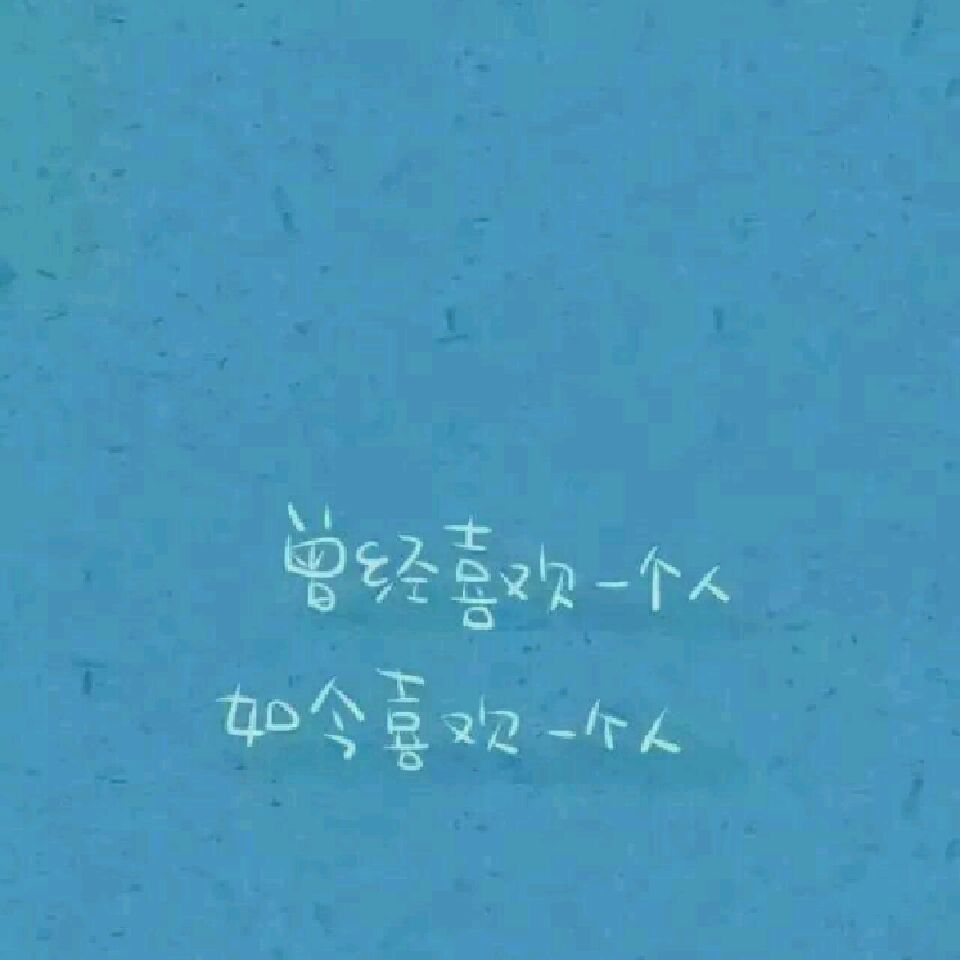 曾经喜欢一个人
如今喜欢一个人